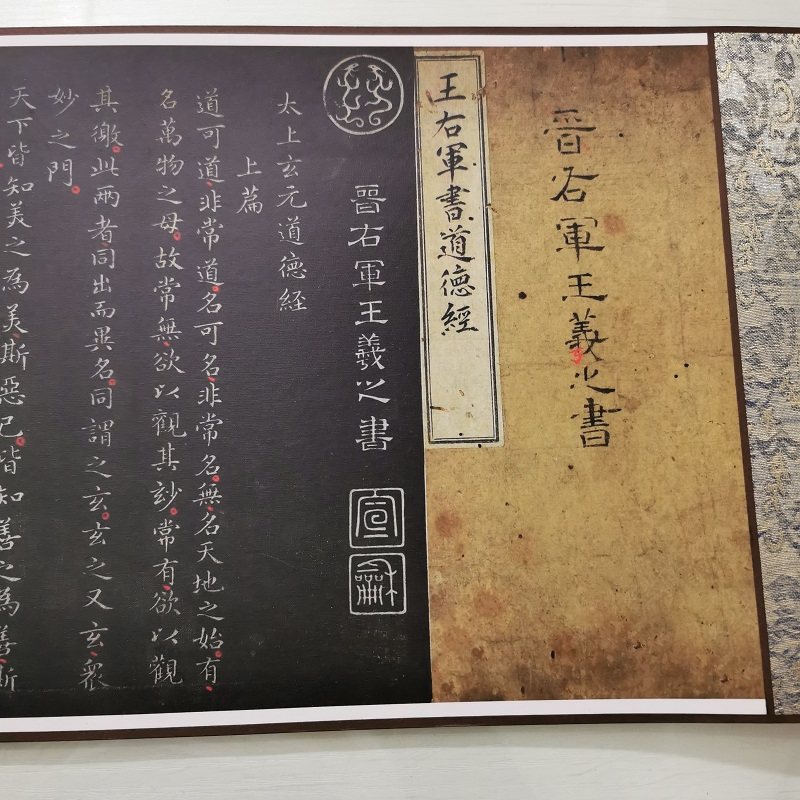 晋右軍王羲之書
王右軍書道德經
晉右軍王羲之書
宣
龢
太上玄元道德經
上篇
道可道非常道名可名非常名無名天地之始有
名萬物之母故常無欲以觀其玅常有欲以觀
其徼此兩者同出而異名同謂之玄玄之又玄眾
妙之門
天下皆知美之為美斯惡已皆知善之為善斯